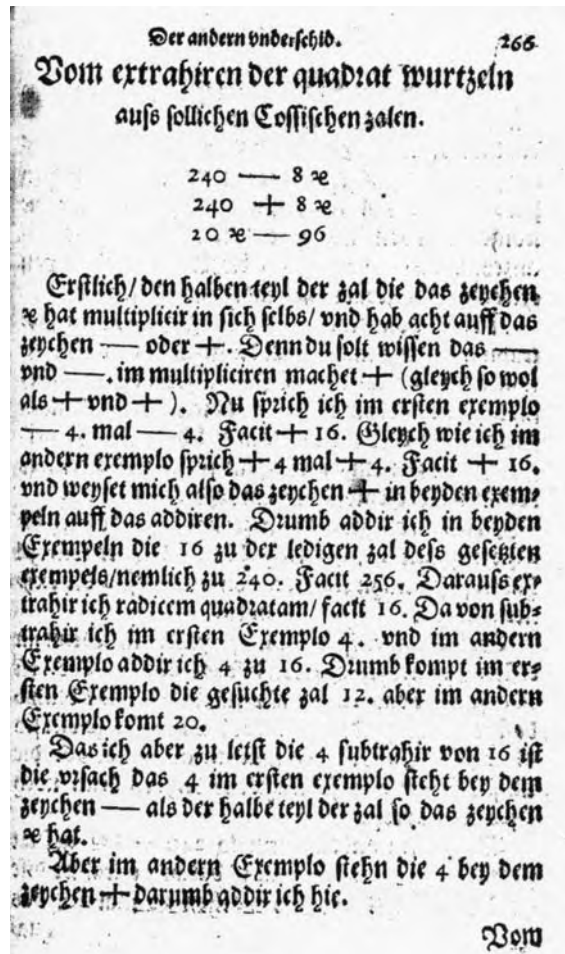 Der andern vnderschid. 266
Vom extrahiren der quadrat wurtzeln
auſs ſollichen Coſſiſchen zalen.
240 — 8 ꝛe
240 + 8 ꝛe
20 ꝛe — 96
Erſtlich/ den halben teyl der zal die das zeychen
ꝛe hat multiplicir in ſich ſelbs/ vnd hab acht auff das
zeychen — oder +. Denn du ſolt wiſſen das —
vnd —. im multipliciren machet + (gleych ſo wol
als + vnd + ). Nu ſprich ich im erſten exemplo
— 4. mal — 4. Facit + 16. Gleych wie ich im
andern exemplo ſprich + 4 mal + 4. Facit + 16.
vnd weyſet mich alſo das zeychen + in beyden exem⸗
peln auff das addiren. Drumb addir ich in beyden
Exempeln die 16 zu der ledigen zal deſs geſetzten
exempels/nemlich zu 240. Facit 256. Darauſs ex⸗
trahir ich radicem quadratam/ facit 16. Da von ſub⸗
trahir ich im erſten Exemplo 4. vnd im andern
Exemplo addir ich 4 zu 16. Drumb kompt im er⸗
ſten Exemplo die geſuchte zal 12. aber im andern
Exemplo komt 20.
Das ich aber zu letſt die 4 ſubtrahir von 16 iſt
die vrſach das 4 im erſten exemplo ſteht bey dem
zeychen — als der halbe teyl der zal ſo das zeychen
ꝛe hat.
Aber im andern Exemplo ſtehn die 4 bey dem
zeychen + darumb addir ich hie.
Vom